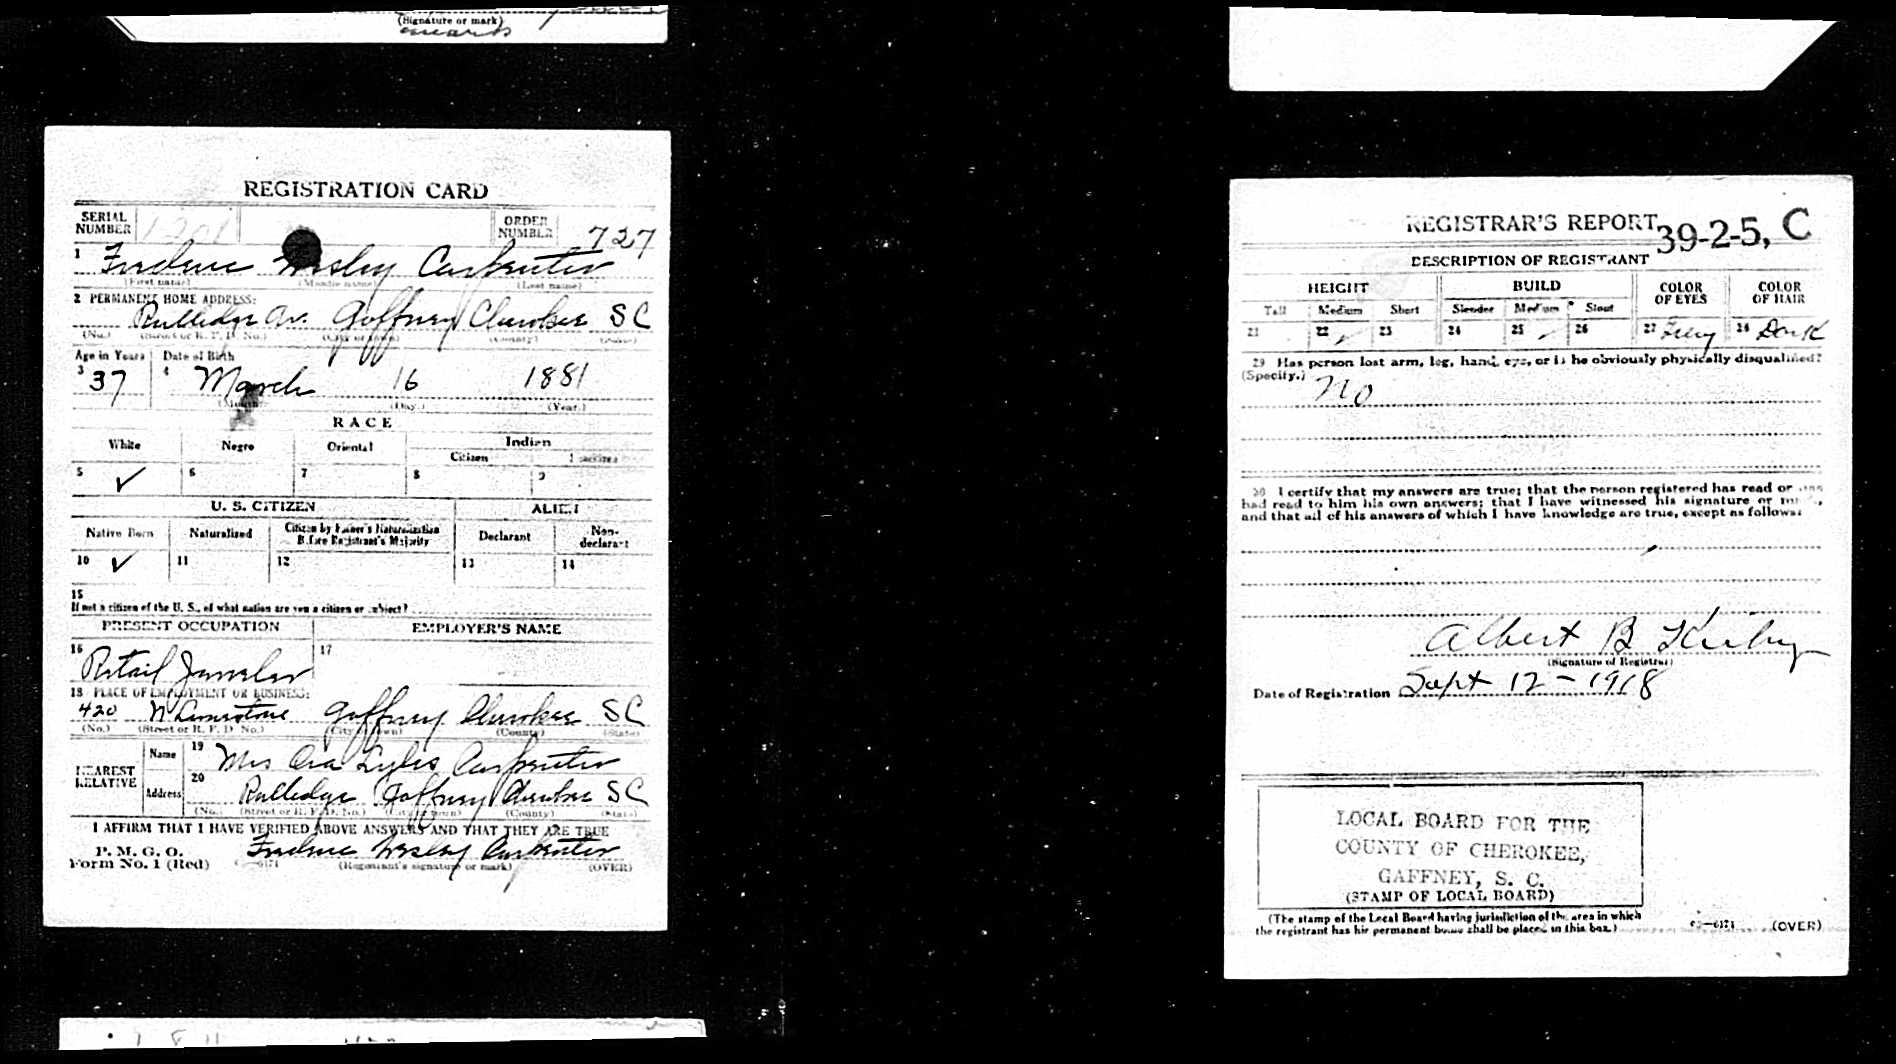 (Signature or mark)
REGISTRATION CARD
SERIAL NUMBER 1201 ORDER NUMBER 727
1 Frederic Wesley Carpenter
(First name) (Middle name) (Last name)
2 PERMANENT HOME ADDRESS:
Rutledge Av. Gaffney Cherokee SC
(No.) (Street or R. F. D. No.) (City or town) (County) (State)
Age in Years Date of Birth
3 37 4 March 16 1881
(Month) (Day.) (Year.)
RACE
White Negro Oriental Indian
Citizen
5 ✓ 6 7 8 9
U. S. CITIZEN ALIEN
Native Born Naturalized Citizen by Father's Naturalization Before Registrant's Majority Declarant Non-declarant
10 ✓ 11 12 13 14
15
If not a citizen of the U. S., of what nation are you a citizen or subject?
PRESENT OCCUPATION EMPLOYER'S NAME
16 Retail Jeweler 17
18 PLACE OF EMPLOYMENT OR BUSINESS:
420 N Limestone Gaffney Cherokee SC
(No.) (Street or R. F. D. No.) (City or town) (County) (State)
NEAREST RELATIVE Name 19 Mrs Ora Lyles Carpenter
Address 20 Rutledge Gaffney Cherokee SC
(No.) (Street or R. F. D. No.) (City or town) (County) (State)
I AFFIRM THAT I HAVE VERIFIED ABOVE ANSWERS AND THAT THEY ARE TRUE
P. M. G. O.
Form No. 1 (Red) Frederic Wesley Carpenter
(Registrant's signature or mark) (OVER)
REGISTRAR'S REPORT 39-2-5, C
DESCRIPTION OF REGISTRANT
HEIGHT BUILD COLOR OF EYES COLOR OF HAIR
Tall Medium Short Slender Medium Stout
21 22 ✓ 23 24 25 ✓ 26 27 Grey 28 Dark
29 Has person lost arm, leg, hand, eye, or is he obviously physically disqualified?
(Specify.) No
30 I certify that my answers are true; that the person registered has read or has
had read to him his own answers; that I have witnessed his signature or mark,
and that all of his answers of which I have knowledge are true, except as follows:
Albert B Kirby
(Signature of Registrar)
Date of Registration Sept 12 - 1918
LOCAL BOARD FOR THE
COUNTY OF CHEROKEE,
GAFFNEY, S. C.
(STAMP OF LOCAL BOARD)
(The stamp of the Local Board having jurisdiction of the area in which
the registrant has his permanent home shall be placed in this box.) (OVER)